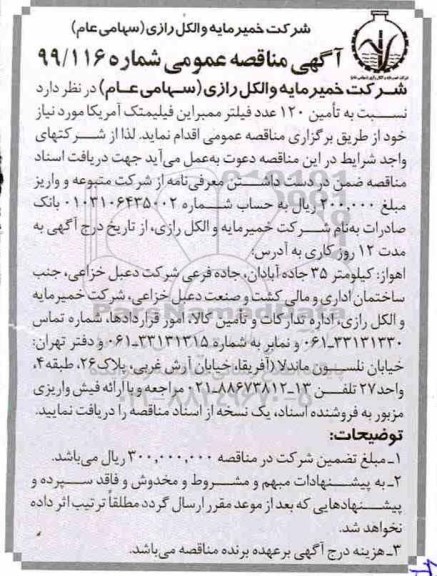 شرکت خمیرمایه والکل رازی (سهامی عام)
آگهی مناقصه عمومی شماره ۹۹/۱۱۶
شرکت خمیرمایه والکل رازی (سهامی عام) در نظر دارد
نسبت به تأمین ۱۲۰ عدد فیلتر ممبراین فیلیمتک آمریکا مورد نیاز
خود از طریق برگزاری مناقصه عمومی اقدام نماید. لذا از شرکتهای
واجد شرایط در این مناقصه دعوت به‌عمل می‌آید جهت دریافت اسناد
مناقصه ضمن در دست داشتن معرفی‌نامه از شرکت متبوعه و واریز
مبلغ ۲۰۰,۰۰۰ ریال به حساب شماره ۰۱۰۳۱۰۶۴۳۵۰۰۲ بانک
صادرات به‌نام شرکت خمیرمایه و الکل رازی، از تاریخ درج آگهی به
مدت ۱۲ روز کاری به آدرس:
اهواز: کیلومتر ۳۵ جاده آبادان، جاده فرعی شرکت دعبل خزاعی، جنب
ساختمان اداری و مالی کشت و صنعت دعبل خزاعی، شرکت خمیرمایه
و الکل رازی، اداره تدارکات و تأمین کالا، امور قراردادها، شماره تماس
۰۶۱-۳۳۱۳۱۳۳۰ و نمابر به شماره ۰۶۱-۳۳۱۳۱۳۱۵ و دفتر تهران:
خیابان نلسون ماندلا (آفریقا) خیابان آرش غربی، پلاک ۲۶، طبقه ۴،
واحد ۲۷ تلفن ۱۳-۰۲۱-۸۸۶۷۳۸۱۲ مراجعه و با ارائه فیش واریزی
مزبور به فروشنده اسناد، یک نسخه از اسناد مناقصه را دریافت نمایید.
توضیحات:
۱- مبلغ تضمین شرکت در مناقصه ۳۰۰,۰۰۰,۰۰۰ ریال می‌باشد.
۲- به پیشنهادات مبهم و مشروط و مخدوش و فاقد سپرده و
پیشنهادهایی که بعد از موعد مقرر ارسال گردد مطلقاً ترتیب اثر داده
نخواهد شد.
۳- هزینه درج آگهی بر عهده برنده مناقصه می‌باشد.